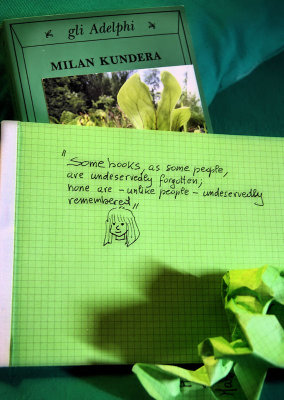 gli Adelphi
MILAN KUNDERA
"Some books, as some people,
are undeservedly forgotten;
none are - unlike people - undeservedly
remembered"